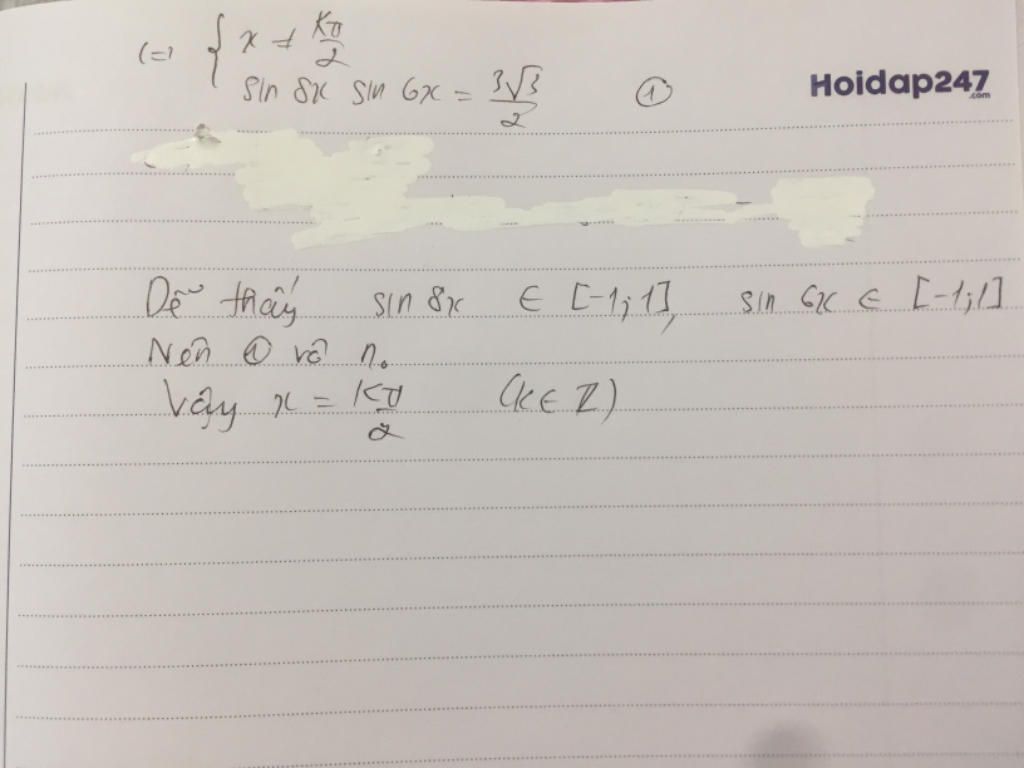 (=) { x ≠ kπ/2
sin 8x sin 6x = 3√3/2 ①
Hoidap247
.com
Dễ thấy sin 8x ∈ [-1;1], sin 6x ∈ [-1;1]
Nên ① vô n.
Vậy x = kπ/2 (k ∈ Z)